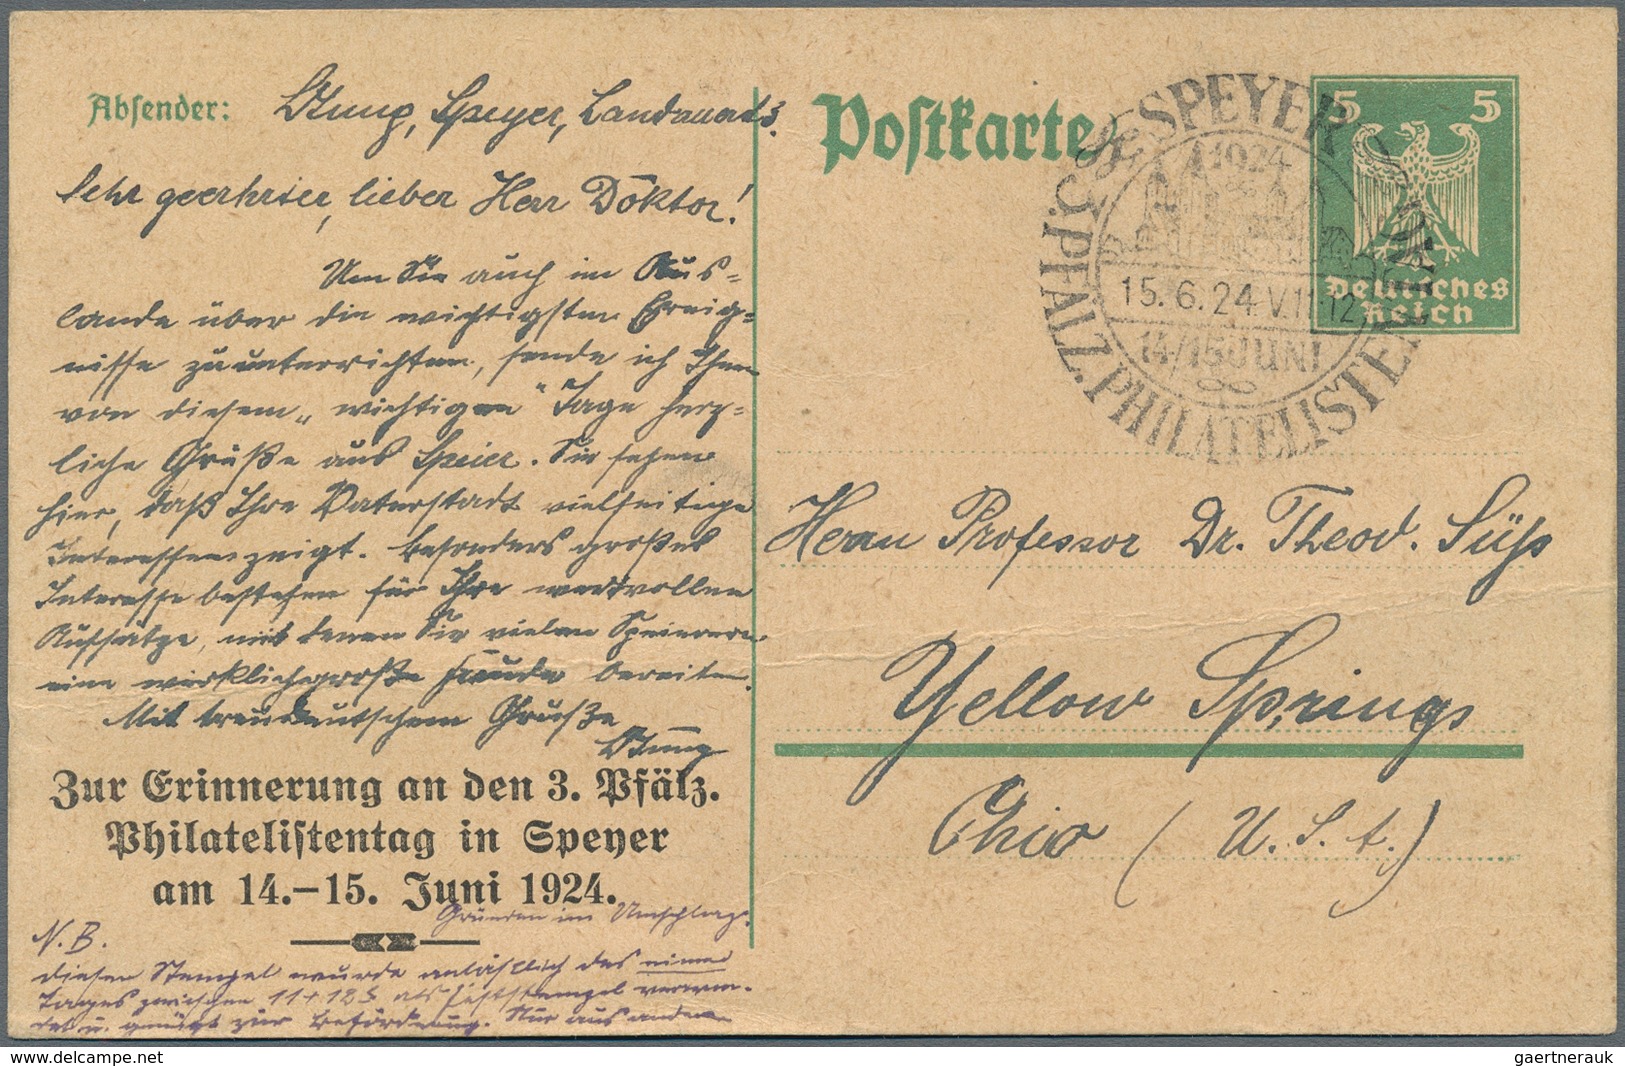 Absender: Speyer, Landauerstr 3.
Sehr geerhrter, lieber Herr Doktor!
Um Sie auch im Aus-
lande über die wichtigsten Ereig-
nisse zu unterrichten, sende ich Ihnen
von diesem „wichtigen" Tage herz-
liche Grüße aus Speier. Sie sehen
hier, daß Ihre Vaterstadt vielseitige
Interessen zeigt. Besonders großes
Interesse bestehen für Ihre wertvollen
Aufsätze, mit denen Sie vielen Speierern
eine wirklich große Freude bereiten.
Mit treudeutschem Gruße
Zur Erinnerung an den 3. Pfälz.
Philatelistentag in Speyer
am 14.–15. Juni 1924.
N.B.
diesen Stempel wurde anläßlich des einen
Tages zwischen 11+12h als Poststempel verwen-
det u. genügt zur Beförderung. Nur aus anderen
Gründen im Umschlag.
Postkarte
SPEYER
1924
15.6.24.V.11-12
14/15JUNI
3.PFÄLZ.PHILATELISTENTAG
5 5
Deutsches
Reich
Herrn Professor Dr. Theod. Süß
Yellow Springs
Ohio (U.S.A.)
gaertnerauk @ delcampe.com
gaertnerauk